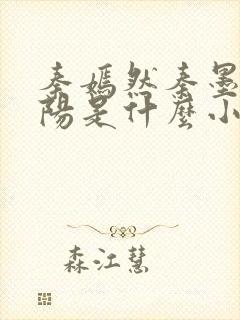 秦嫣然秦墨
陽是什麼小
森江慧